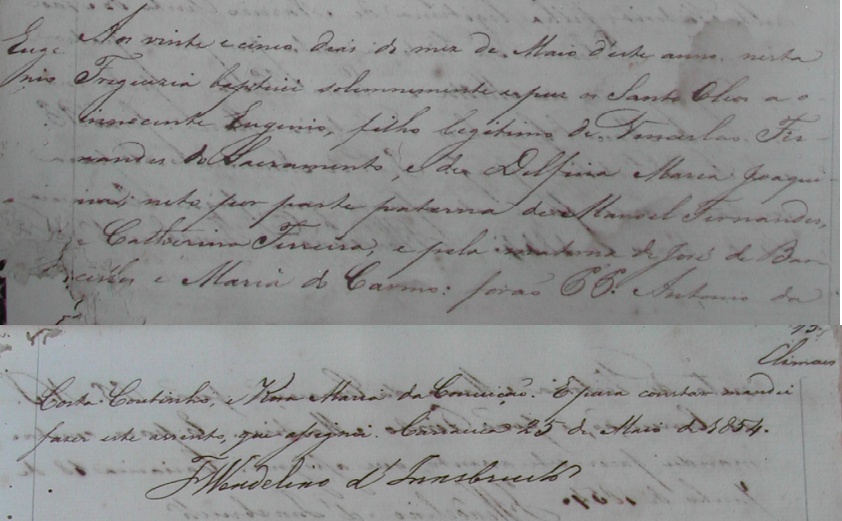 Euge
nio
Aos vinte e cinco dias do mez de Maio d'este anno nesta
Freguezia baptizei solemnemente e puz os Santos Oleos a o
innocente Eugenio, filho legitimo de Venceslao Fer-
nandes do Sacramento, e de Delfina Maria Joaqui-
na; neto por parte paterna de Manoel Fernandes,
e Catherina Ferreira, e pela materna de José de Bar-
cellos e Maria do Carmo: forão PP. Antonio da
Costa Coutinho, e Rosa Maria da Conceição. E para constar mandei
fazer este assento, que assignei. Cariacica 25 de Maio de 1854.
Fr Wendelino d'Innsbruck